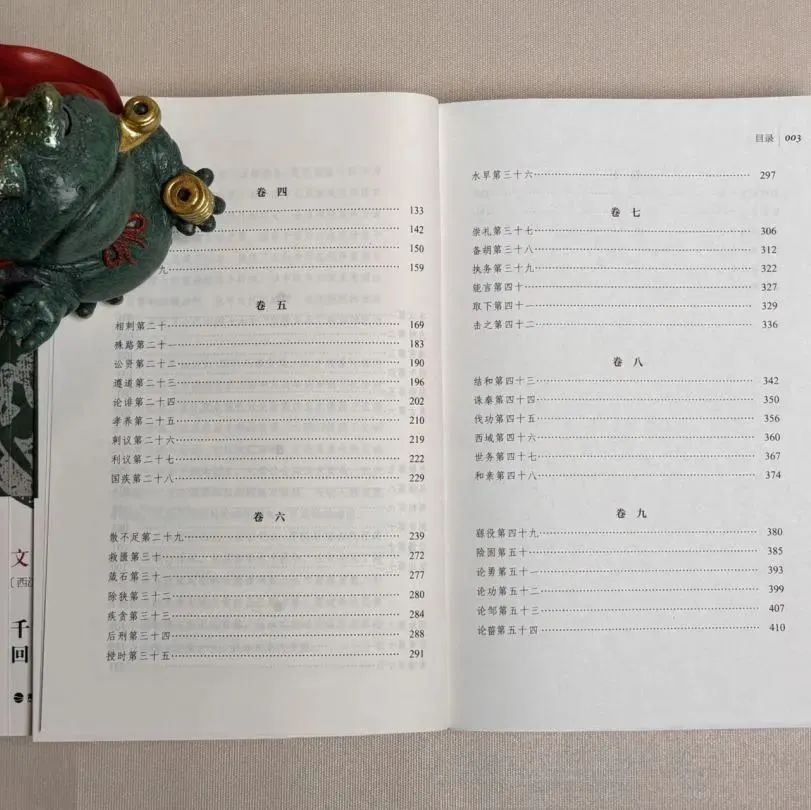 卷 四
133
142
150
九 159
卷 五
相刺第二十 169
殊路第二十一 183
讼贤第二十二 190
遵道第二十三 196
论诽第二十四 202
孝养第二十五 210
刺议第二十六 219
利议第二十七 222
国疾第二十八 229
卷 六
散不足第二十九 239
救匮第三十 272
箴石第三十一 277
除狭第三十二 280
疾贪第三十三 284
后刑第三十四 288
授时第三十五 291
目录 003
水旱第三十六 297
卷 七
崇礼第三十七 306
备胡第三十八 312
执务第三十九 322
能言第四十 327
取下第四十一 329
击之第四十二 336
卷 八
结和第四十三 342
诛秦第四十四 350
伐功第四十五 356
西域第四十六 360
世务第四十七 367
和亲第四十八 374
卷 九
繇役第四十九 380
险固第五十 385
论勇第五十一 393
论功第五十二 399
论邹第五十三 407
论菑第五十四 410
文
千
回